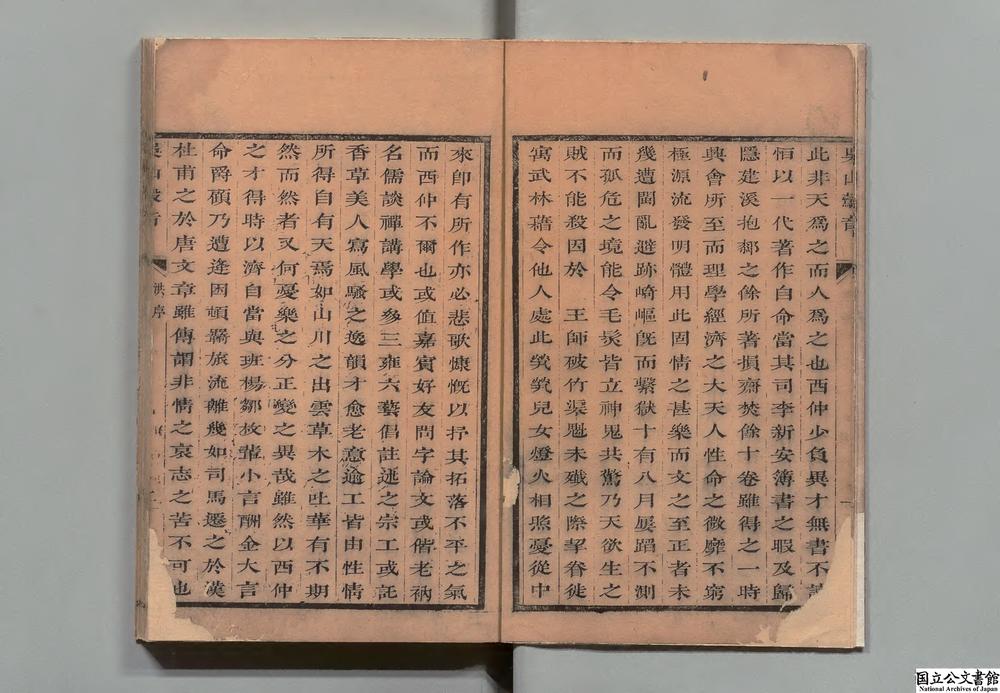 此非天爲之而人爲之也西仲少負異才無書不
恒以一代著作自命當其司李新安簿書之暇及歸
隱建溪抱鄰之餘所著損齋焚餘十卷雖得之一時
興會所至而理學經濟之大天人性命之微靡不窮
極源流發明體用此固情之甚樂而文之至正者未
幾遭閩亂避跡崎嶇旣而繫獄十有八月屢蹈不測
而孤危之境能令毛髮皆立神鬼共驚乃天欲生之
賊不能殺因於 王師破竹渠魁未殲之際挈眷徙
寓武林藉令他人處此煢煢兒女燈火相照憂從中
來卽有所作亦必悲歌慷慨以抒其拓落不平之氣
而西仲不爾也或值嘉賓好友問字論文或偕老衲
名儒談禪講學或爹三雍六藝倡註述之宗工或託
香草美人寫風騷之逸韻才愈老意逾工皆由性情
所得自有天焉如山川之出雲草木之吐華有不期
然而然者又何憂樂之分正變之異哉雖然以西仲
之才得時以濟自當與班楊鄒枚輩小言酬金大言
命爵碩乃遭逢困頓羇旅流離幾如司馬遷之於漢
杜甫之於唐文章雖傳謂非情之哀志之苦不可也
洪序
国立公文書館
National Archives of Japan